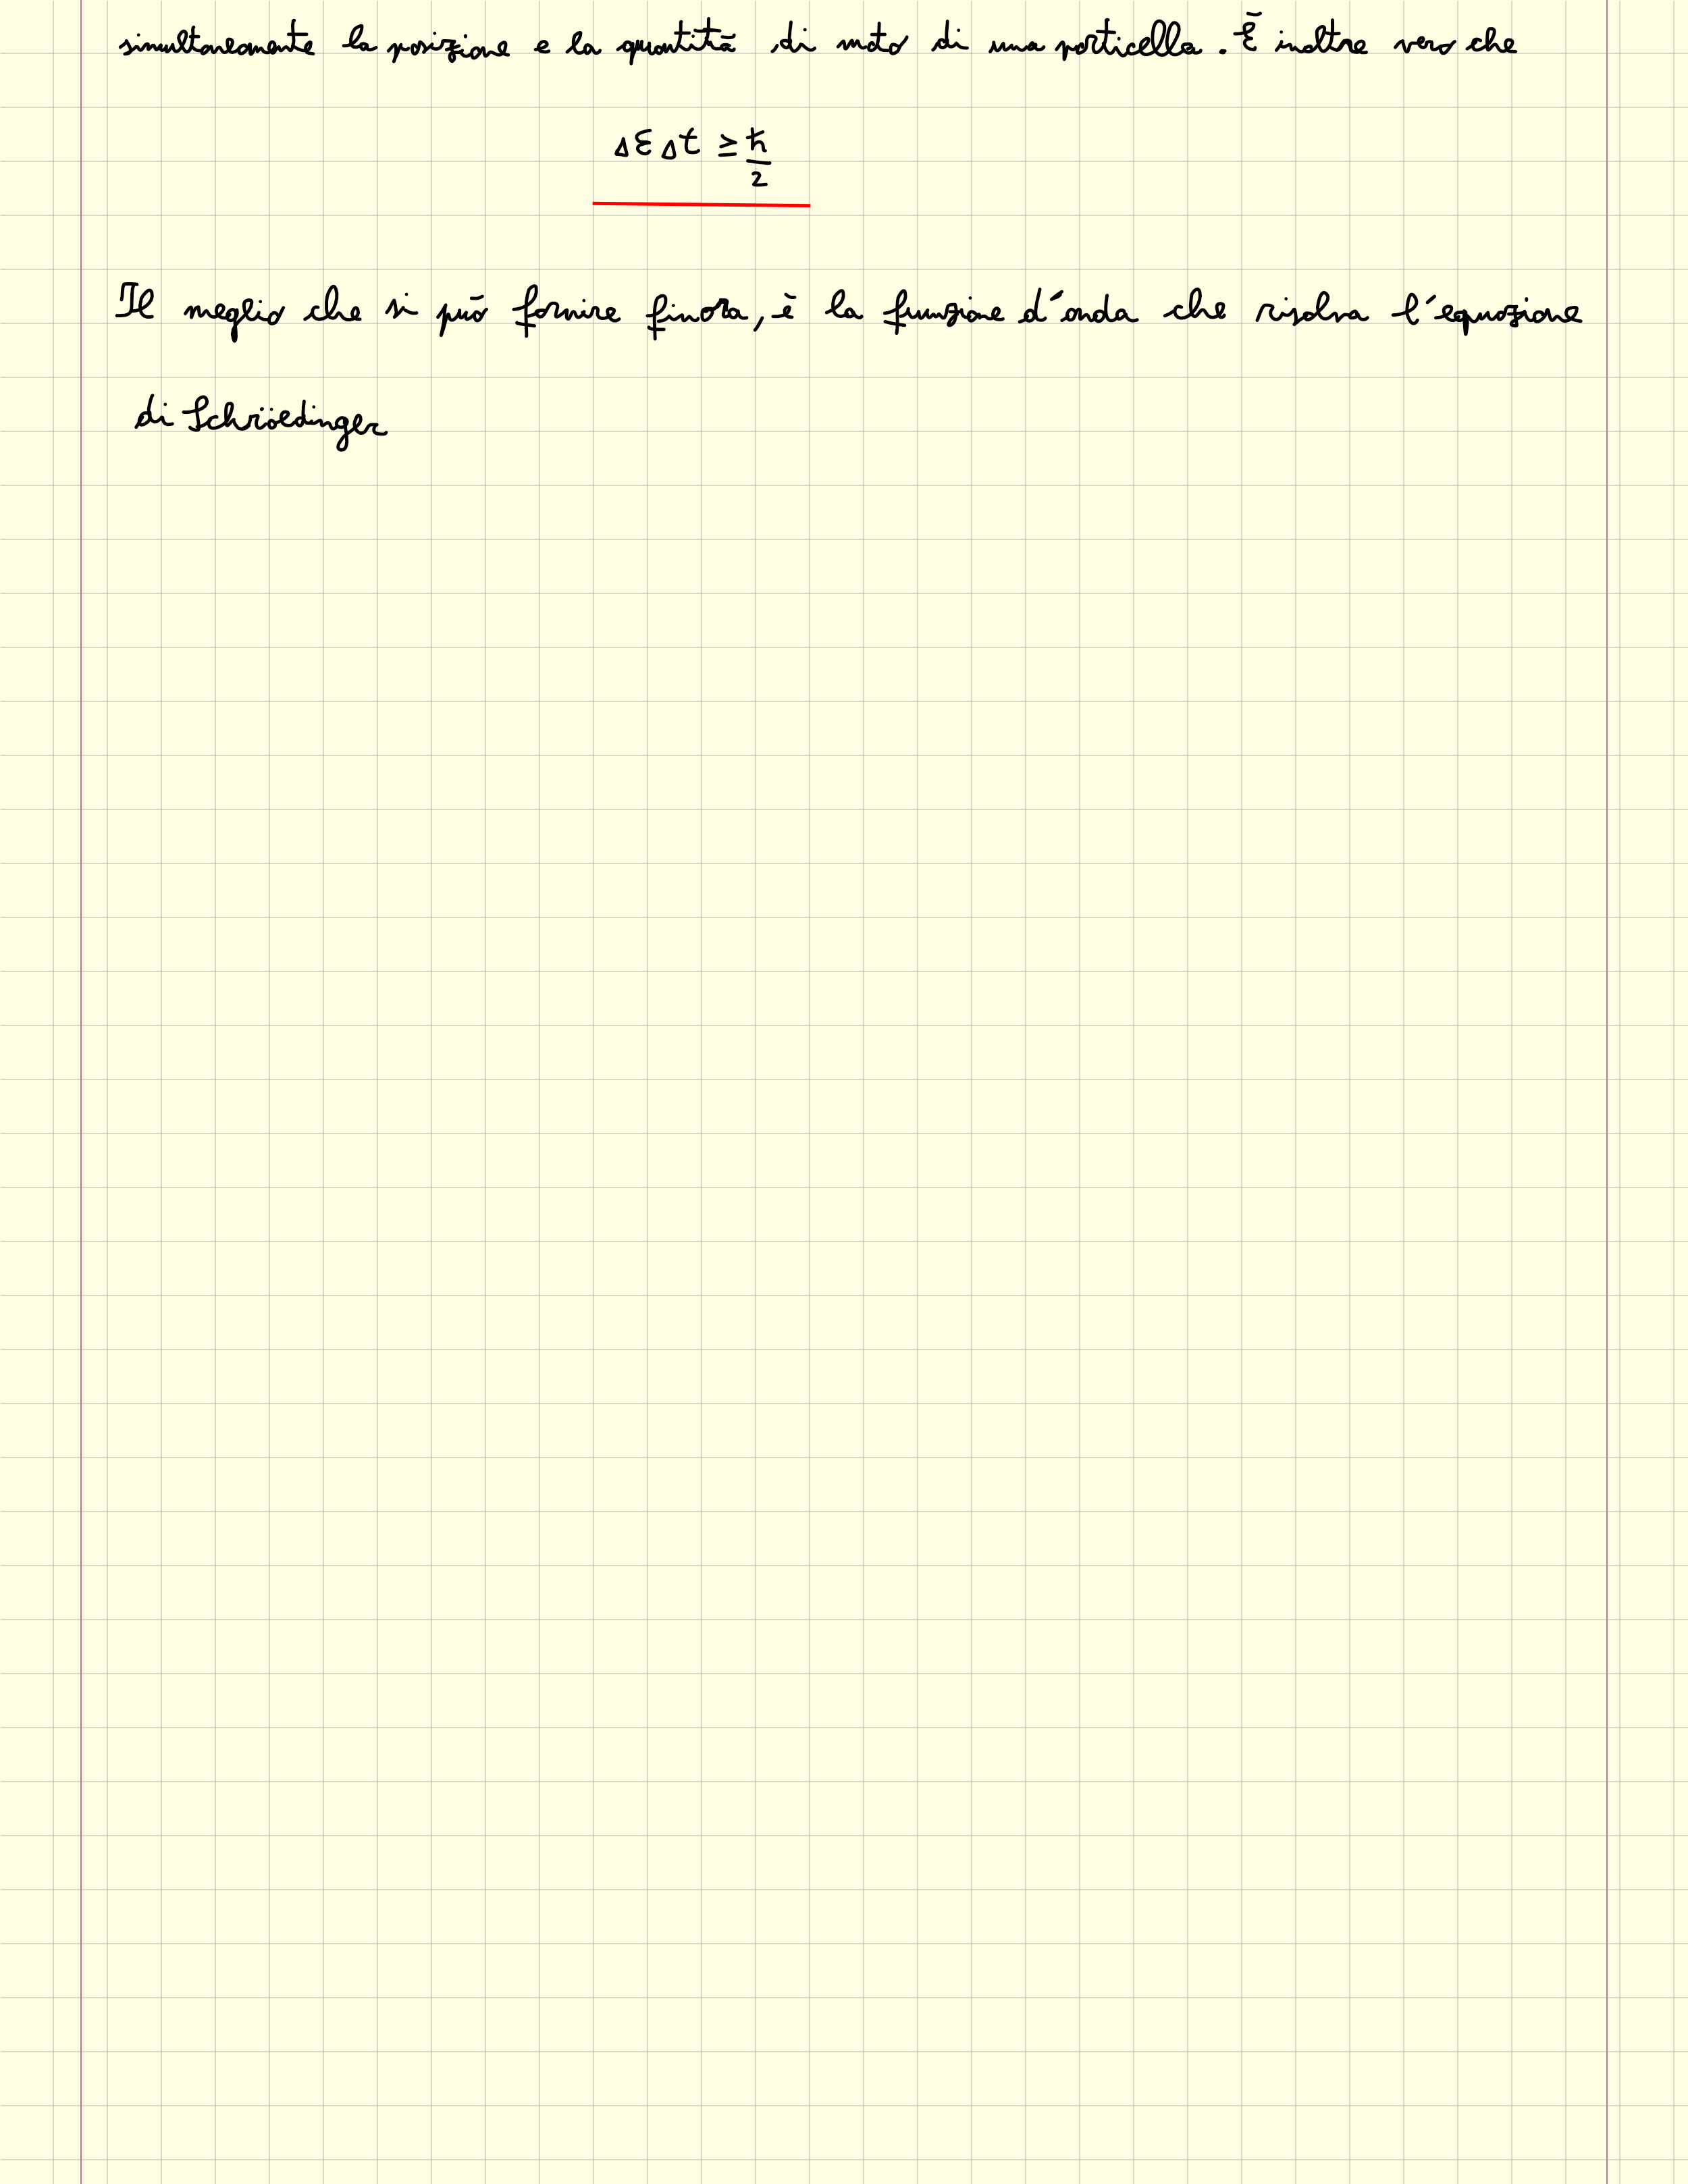 simultaneamente la posizione e la quantità di moto di una particella. È inoltre vero che
ΔEΔt ≥ ℏ/2
Il meglio che si può fornire finora, è la funzione d'onda che risolva l'equazione
di Schröedinger